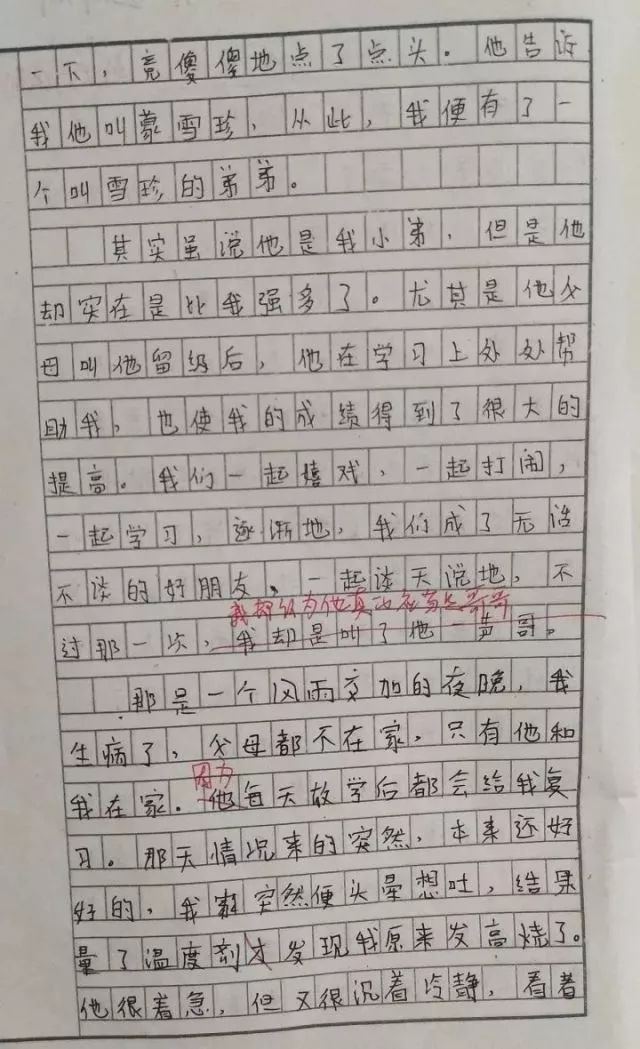 一下，竟傻傻地点了点头。他告诉
我他叫蒙雪珍，从此，我便有了一
个叫雪珍的弟弟。
其实虽说他是我小弟，但是他
却实在是比我强多了。尤其是他父
母叫他留级后，他在学习上处处帮
助我，也使我的成绩得到了很大的
提高。我们一起嬉戏，一起打闹，
一起学习，逐渐地，我们成了无话
不谈的好朋友，一起谈天说地，不
我却认为他真的应当是哥哥
过那一次，我却是叫了他一声哥。
那是一个风雨交加的夜晚，我
生病了，父母都不在家，只有他和
因为
我在家。他每天放学后都会给我复
习。那天情况来的突然，本来还好
好的，我突然便头晕想吐，结果
量了温度剂才发现我原来发高烧了。
他很着急，但又很沉着冷静，看着